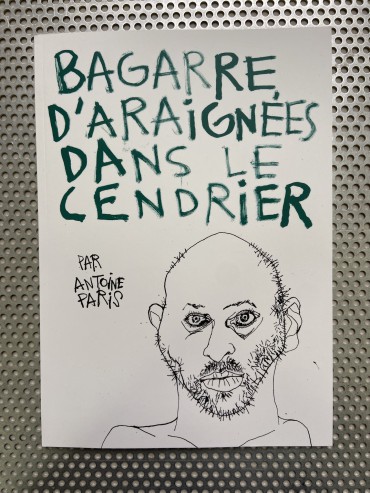 BAGARRE
D'ARAiGNÉES
DANS LE
CENDRiER
PAR
ANTOiNE
PARiS